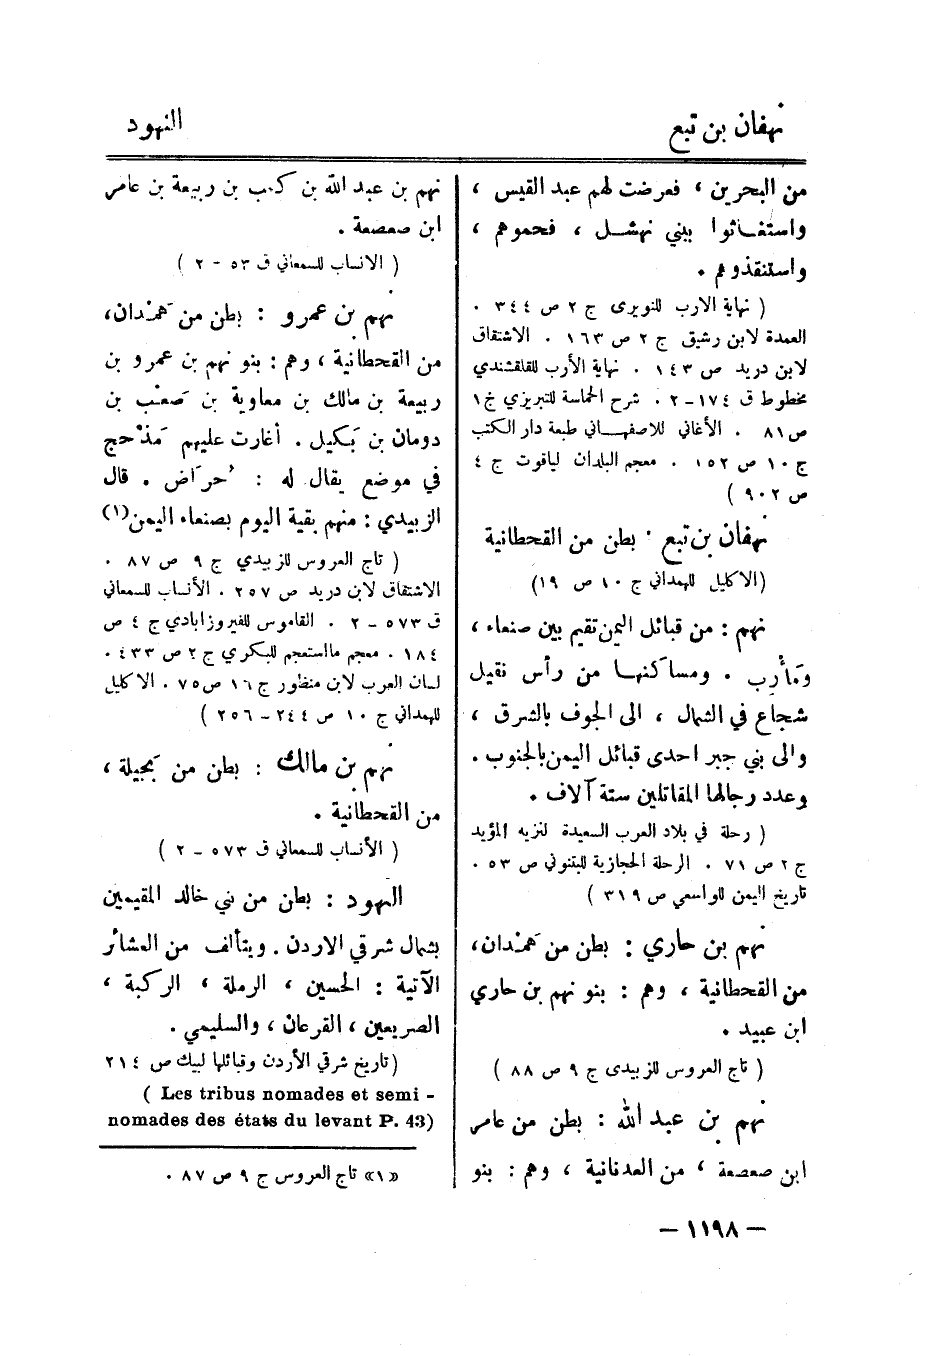 نهفان بن تبع
النهود
من البحرين ، فعرضت لهم عبد القيس ،
واستغاثوا ببني نهشل ، فحموهم ،
واستنقذوهم .
( نهاية الارب للنويرى ج ٢ ص ٣٤٤ .
العمدة لابن رشيق ج ٢ ص ١٦٣ . الاشتقاق
لابن دريد ص ١٤٣ . نهاية الأرب للقلقشندي
مخطوط ق ١٧٤-٢ . شرح الحماسة للتبريزي ج١
ص٨١ . الأغاني للاصفهاني طبعة دار الكتب
ج ١٠ ص ١٥٢ . معجم البلدان لياقوت ج ٤
ص ٩٠٢ )
نهفان بن تبع : بطن من القحطانية
(الاكليل للهمداني ج ١٠ ص ١٩)
نهم : من قبائل اليمن تقيم بين صنعاء ،
ومَأرب . ومساكنها من رأس نقيل
شجاع في الشمال ، الى الجوف بالشرق ،
والى بني جبر احدى قبائل اليمن بالجنوب .
وعدد رجالها المقاتلين ستة آلاف .
( رحلة في بلاد العرب السعيدة لنزيه المؤيد
ج ٢ ص ٧١ . الرحلة الحجازية للبتنوني ص ٥٣ .
تاريخ اليمن للواسعي ص ٣١٩ )
نهم بن حاري : بطن من هَمْدان،
من القحطانية ، وهم : بنو نهم بن حاري
ابن عبيد .
( تاج العروس للزبيدى ج ٩ ص ٨٨ )
نهم بن عبد الله : بطن من عامر
ابن صعصعة ، من العدنانية ، وهم : بنو
نهم بن عبد الله بن كعب بن ربيعة بن عامر
ابن صعصعة .
( الانساب للسمعاني ق ٥٣ - ٢ )
نهم بن عمرو : بطن من هَمْدان،
من القحطانية ، وهم : بنو نهم بن عمرو بن
ربيعة بن مالك بن معاوية بن صَعْب بن
دومان بن بَكيل . أغارت عليهم مَذْحج
في موضع يقال له : حُرَاض . قال
الزبيدي : منهم بقية اليوم بصنعاء اليمن(١)
( تاج العروس للزبيدي ج ٩ ص ٨٧ .
الاشتقاق لابن دريد ص ٢٥٧ . الأنساب للسمعاني
ق ٥٧٣ - ٢ . القاموس للفيروزابادي ج ٤ ص
١٨٤ . معجم ما استعجم للبكري ج ٢ ص ٤٣٣ .
لسان العرب لابن منظور ج ١٦ ص٧٥ . الاكليل
للهمداني ج ١٠ ص ٢٤٤ - ٢٥٦ )
نهم بن مالك : بطن من بَجيلة ،
من القحطانية .
( الأنساب للسمعاني ق ٥٧٣ - ٢ )
النهود : بطن من بني خالد المقيمين
بشمال شرقي الاردن . ويتألف من العشائر
الآتية : الحسين ، الرملة ، الركبة ،
الصريعين ، القرعان ، والسليمي .
(تاريخ شرقي الأردن وقبائلها لبيك ص ٢١٤
( Les tribus nomades et semi -
nomades des états du levant P. 43)
«١» تاج العروس ج ٩ ص ٨٧ .
— ١١٩٨ —